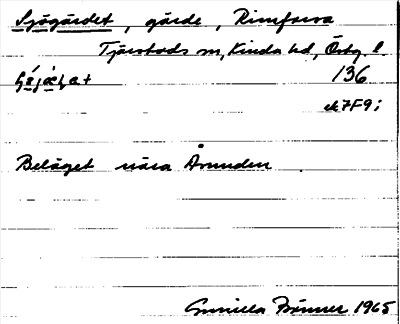 Sjögärdet, gärde, Rimforsa
Tjärstads sn, Kinda hd, Östg. l.
136
ek 7F9;
Beläget nära Åsunden.
Gunilla Brömer 1965